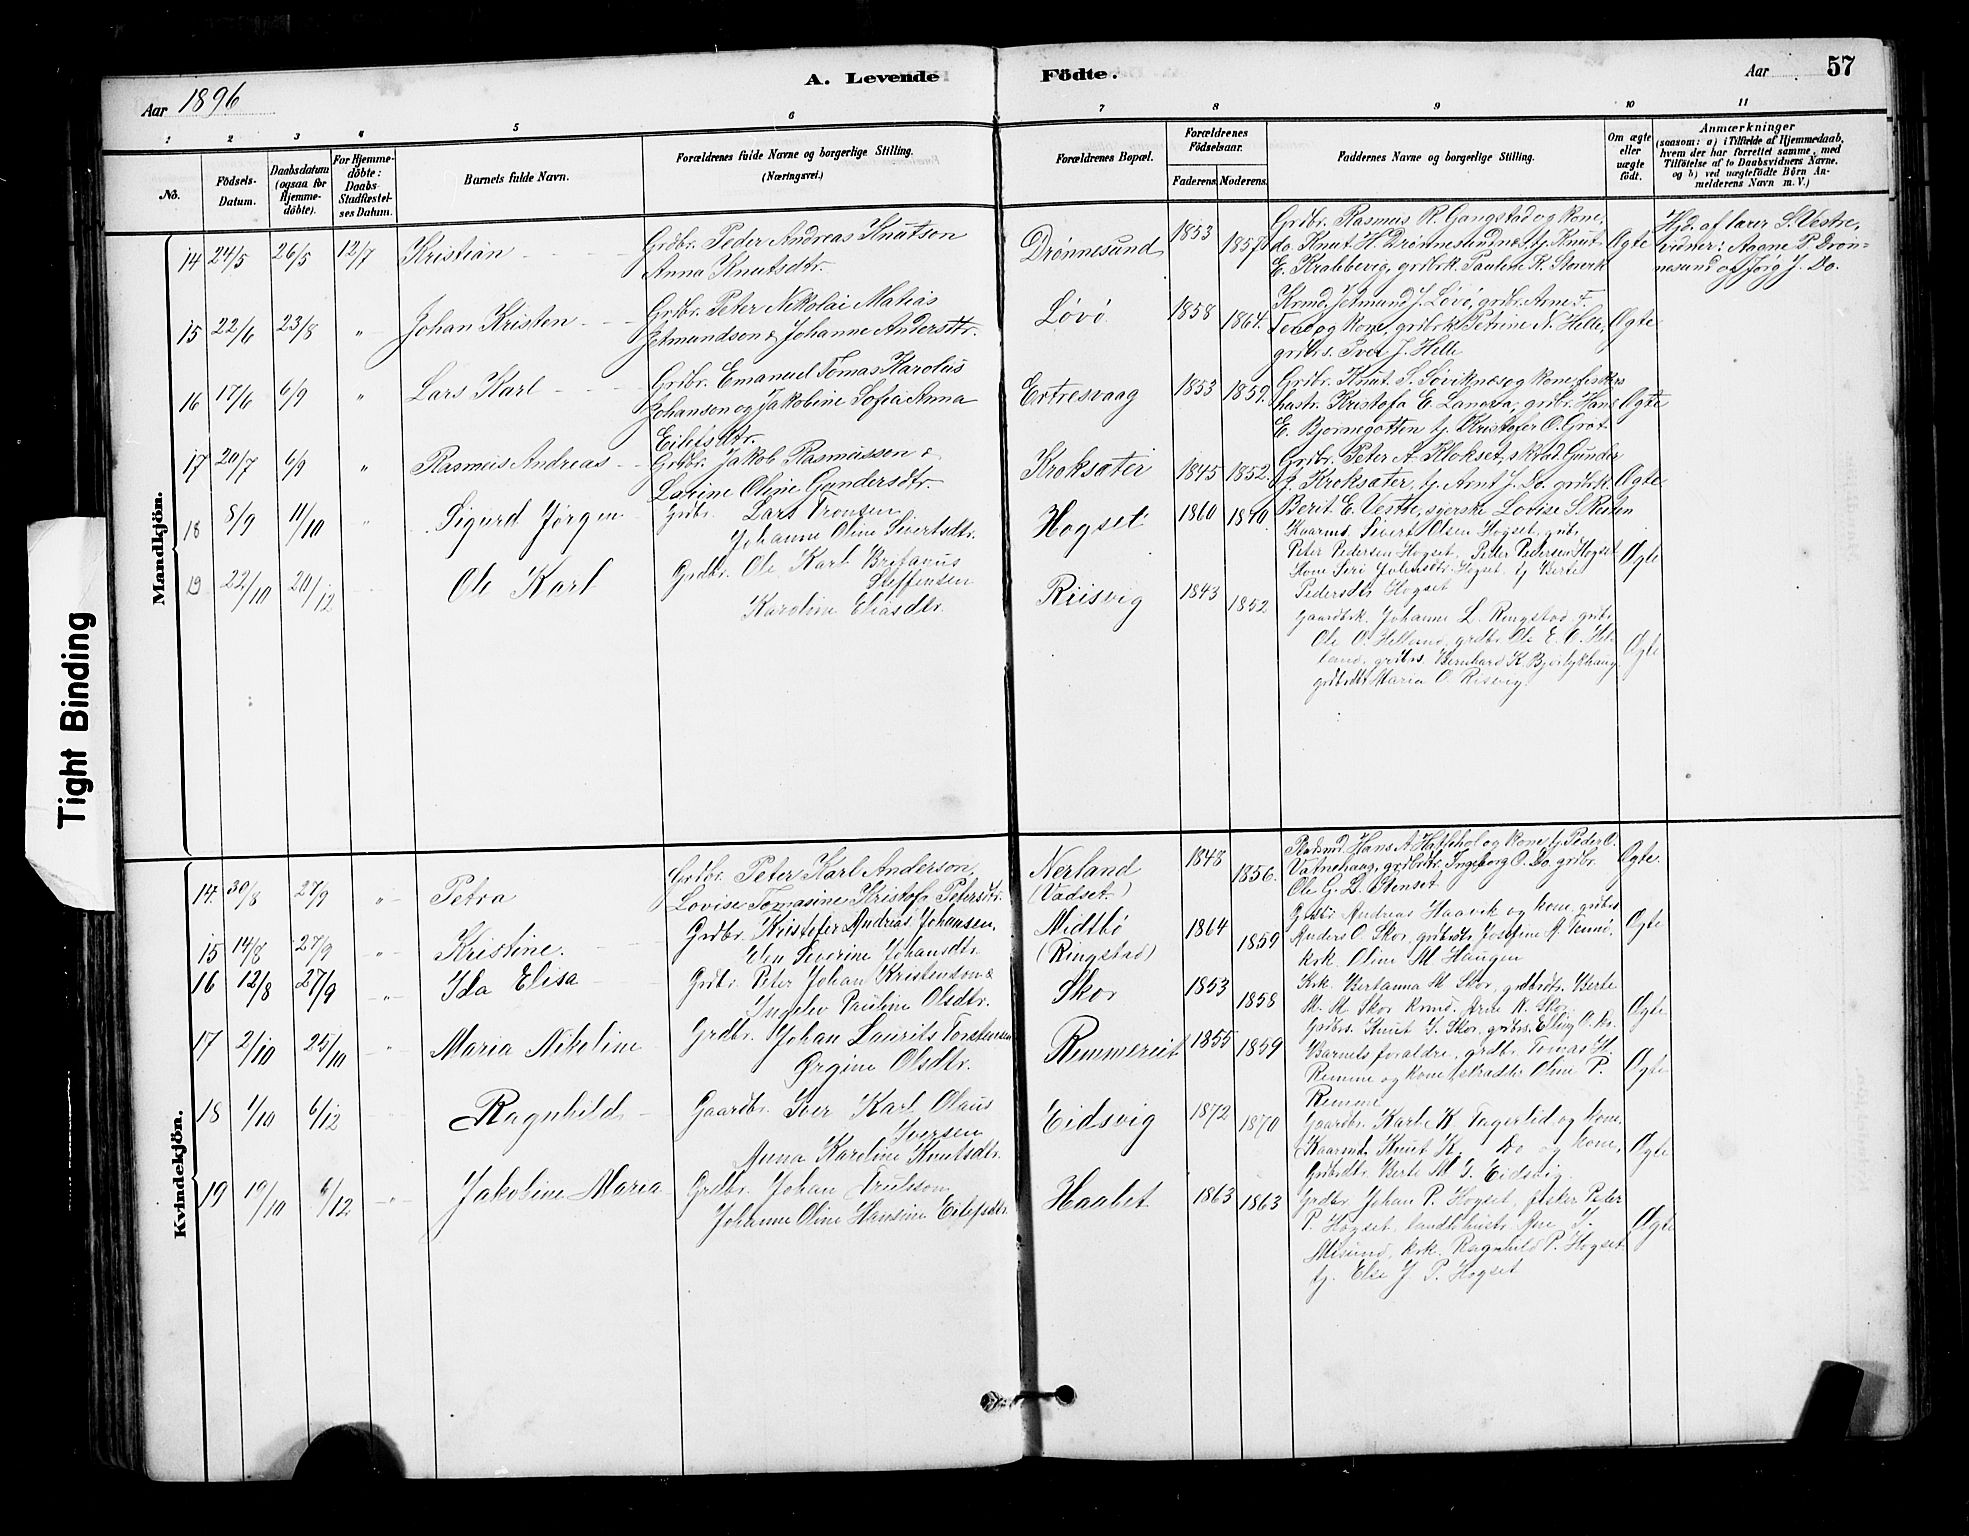 Aar 1896
A. Levende
Födte.
Aar
57
1 2 3 4 5 6 7 8 9 10 11
No.
Födsels-
Datum.
Daabsdatum
(ogsaa for
Hjemme-
döbte).
For Hjemme-
döbte:
Daabs-
Stadfæstel-
ses Datum.
Barnets fulde Navn.
Forældrenes fulde Navne og borgerlige Stilling.
(Næringsvei.)
Forældrenes Bopæl.
Forældrenes
Födselsaar.
Faderens.
Moderens.
Faddernes Navne og borgerlige Stilling.
Om ægte
eller
uægte
födt.
Anmærkninger
(saasom: a) i Tilfælde af Hjemmedaab,
hvem der har forrettet samme, med
Tilföielse af to Daabsvidners Navne,
og b) ved uægtefödte Börn An-
melderens Navn m. V.)
Mandkjön.
14 24/5 26/5 12/7 Kristian
Grdbr. Peder Andreas Knutson
Anna Knutsdtr.
Drønnesund 1853 1857
Grdbr. Rasmus R. Gangstad og kone,
do. Knut H. Drønnesundnes, tj. Knut
E. Krakevig, grdbrk. Pauline R.
Ægte
Hjd. af lærer S. Vestre,
vidner: Aagne P. Drøn-
nesund og Jørg J. Do.
15 22/6 23/8 " Johan Kristen
Grdbr. Peter Nikolai Matias
Jetmundson & Johanne Andersdtr.
Løvø 1858 1864.
Krmd. Jetmund J. Løvø, grdbr. Arne F.
og kone, grdbrk. Petrine N. Helle,
grdbrs. Iver J. Helle
Ægte
16 17/6 6/9 " Lars Karl
Grdbr. Emanuel Tomas Karolus
Johanson og Jakobine Sofia Anna
Eilefsdtr.
Ertresvaag 1853 1859.
Grdbr. Knut S. Søviknes og kone, fiskers
hustr. Kristofa E. grdbr. Hans
E. Bjørnegotten, tj. Kristofer O.
Ægte
17 20/7 6/9 " Rasmus Andreas
Grdbr. Jakob Rasmussen &
Lovine Oline Gundersdtr.
Kroksæter 1845 1852.
Grdbr. Peter A. Klokset, Gunder
J. Kroksæter, tj. Arnt J. Do. grdbrk.
Berit E. syerske Lovise S.
Ægte
18 8/9 11/10 " Sigurd Jørgen
Grdbr. Lars Tronsen
Johanne Oline Sivertsdtr.
Hogset 1860 1870.
Kaarmd. Sivert Olsen Hogset, grdbr.
Peter Pedersen Hogset, Peder Pedersen Hogset
kone Siri Hogset, tj. Berte
Pedersdtr. Hogset
Ægte
19 22/10 20/12 Ole Karl
Grdbr. Ole Karl
Steffensen
Karoline Eliasdtr.
Riisvig 1843 1852
Gaardbrk. Johanne L. Ringstad, grdbr.
Ole O. Helland, grdbr. Ole E. O. Hel-
land, grdbrs. Bernhard K.
grdbrdtr. Maria O. Risvig
Ægte
Kvindekjön.
14. 30/8 27/9 " Petra
Grdbr. Peter Karl Anderson,
Lovise Tomasine Kristofa Petersdtr.
Nerland
(Vadset.)
1848 1856.
Hans A. Hatlehol og kone, tj. Peder O.
Vatnehaug, grdbrdtr. Ingeborg O. Do. grdbr.
Ole G. L. Stenset
Ægte.
15 14/8 27/9 " Kristine.
Grdbr. Kristofer Andreas Johansen,
Severine Johansdtr.
Midtbø
(Ringstad)
1864 1859
Grdbr. Andreas Haavik og kone, grdbrs.
Anders O. Skor, grdbrdtr. Josefine
krk. Oline M. Haugen
Ægte
16 12/8 27/9 " Ida Elisa
Grdbr. Peter Johan Kristenson &
Pauline Olsdtr.
Skor 1853 1858
Krk. Bertanna M. Skor, grdbrdtr. Berte
M. M. Skor, krmd. Arne K. Skor,
Grdbrs. Knut I. Skor, grdbrs. Elling O.
Ægte
17 2/10 25/10 " Maria Nikoline
Grdbr. Johan Laurits Torstensen
Ørgine Olsdtr.
Remmereit 1855 1859
Barnets forældre, grdbr. Tomas H.
Remme og kone, Oline P.
Remme
Ægte
18 1/10 6/12 Ragnhild
Gaardbr. Iver Karl Olaus
Iversen
Anna Karoline Knutsdtr.
Eidsvig 1872 1870
Gaardbr. Karl K. Fagerlid og kone,
Kaarmd. Knut K. Do og kone,
Grdbrdtr. Berte M. I. Eidsvig.
Ægte
19 19/10 6/12 " Jakoline Maria
Grdbr. Johan
Johanne Oline Hansine Eilefsdtr.
Haabet 1863 1863
Grdbr. Johan P. Hogset, fisker Peter
P. Hogset,
krk. Ragnhild P. Hogset
tj. Else J. P. Hogset
Ægte
Tight Binding